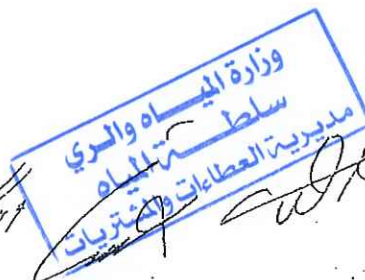 وزارة الميـاه والري
سلطـــة المياه
مديرية العطاءات والمشتريات